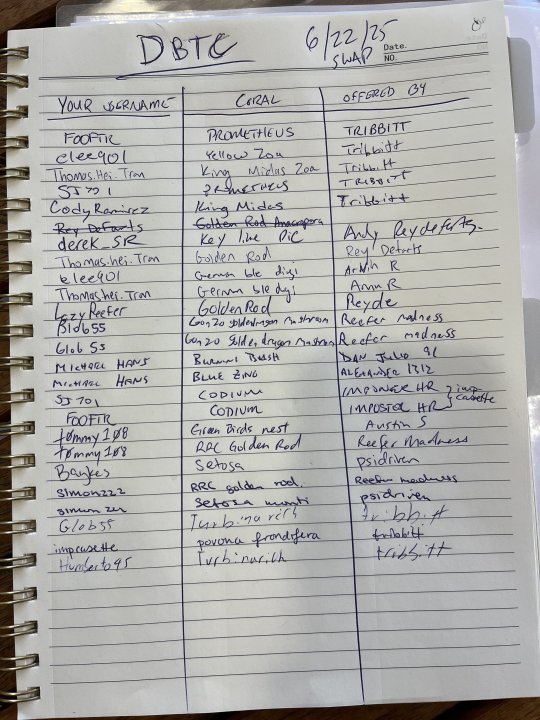 DBTC 6/22/25
SWAP
Date.
NO.
YOUR USERNAME CORAL OFFERED BY
FOOFTR PROMETHEUS TRIBBITT
elee901 Yellow Zoa Tribbitt
Thomas.Hei.Tran King Midas Zoa Tribbitt
SJ701 PROMETHEUS TRIBBITT
Cody Ramirez King Midas Tribbitt
Rey Defarts Golden Rod Anacropora
derek_SR Key lime PiC Andy Reydefarts.
Thomas.hei.Tran Golden Rod Rey Defarts
elee901 German ble digi Armin R
Thomas.hei.Tran German ble digi Armn R
LazyReefer GoldenRod Reyde
Blob55 Gonzo goldendragon mushroom Reefer madness
Glob55 Gonzo Golden dragon mushroom Reefer madness
MICHAEL HANS BURNNI BUSH DAN JULIO 91
MICHAEL HANS BLUE ZING ALEXANDER 1312
SJ701 CODIUM IMPONGER HR
FOOFTR CODIUM IMPOSTER HR
tommy108 Green Birds nest Austin S
tommy108 RRC Golden Rod Reefer Madness
Baykes Setosa psidriven
simonzzz RRC golden rod. Reefer madness
simonzzz setosa monti psidriven
Glob55 Turbinarich tribbitt
impcasette pavona frondifera tribbitt
Humberto95 Turbinarich tribbitt